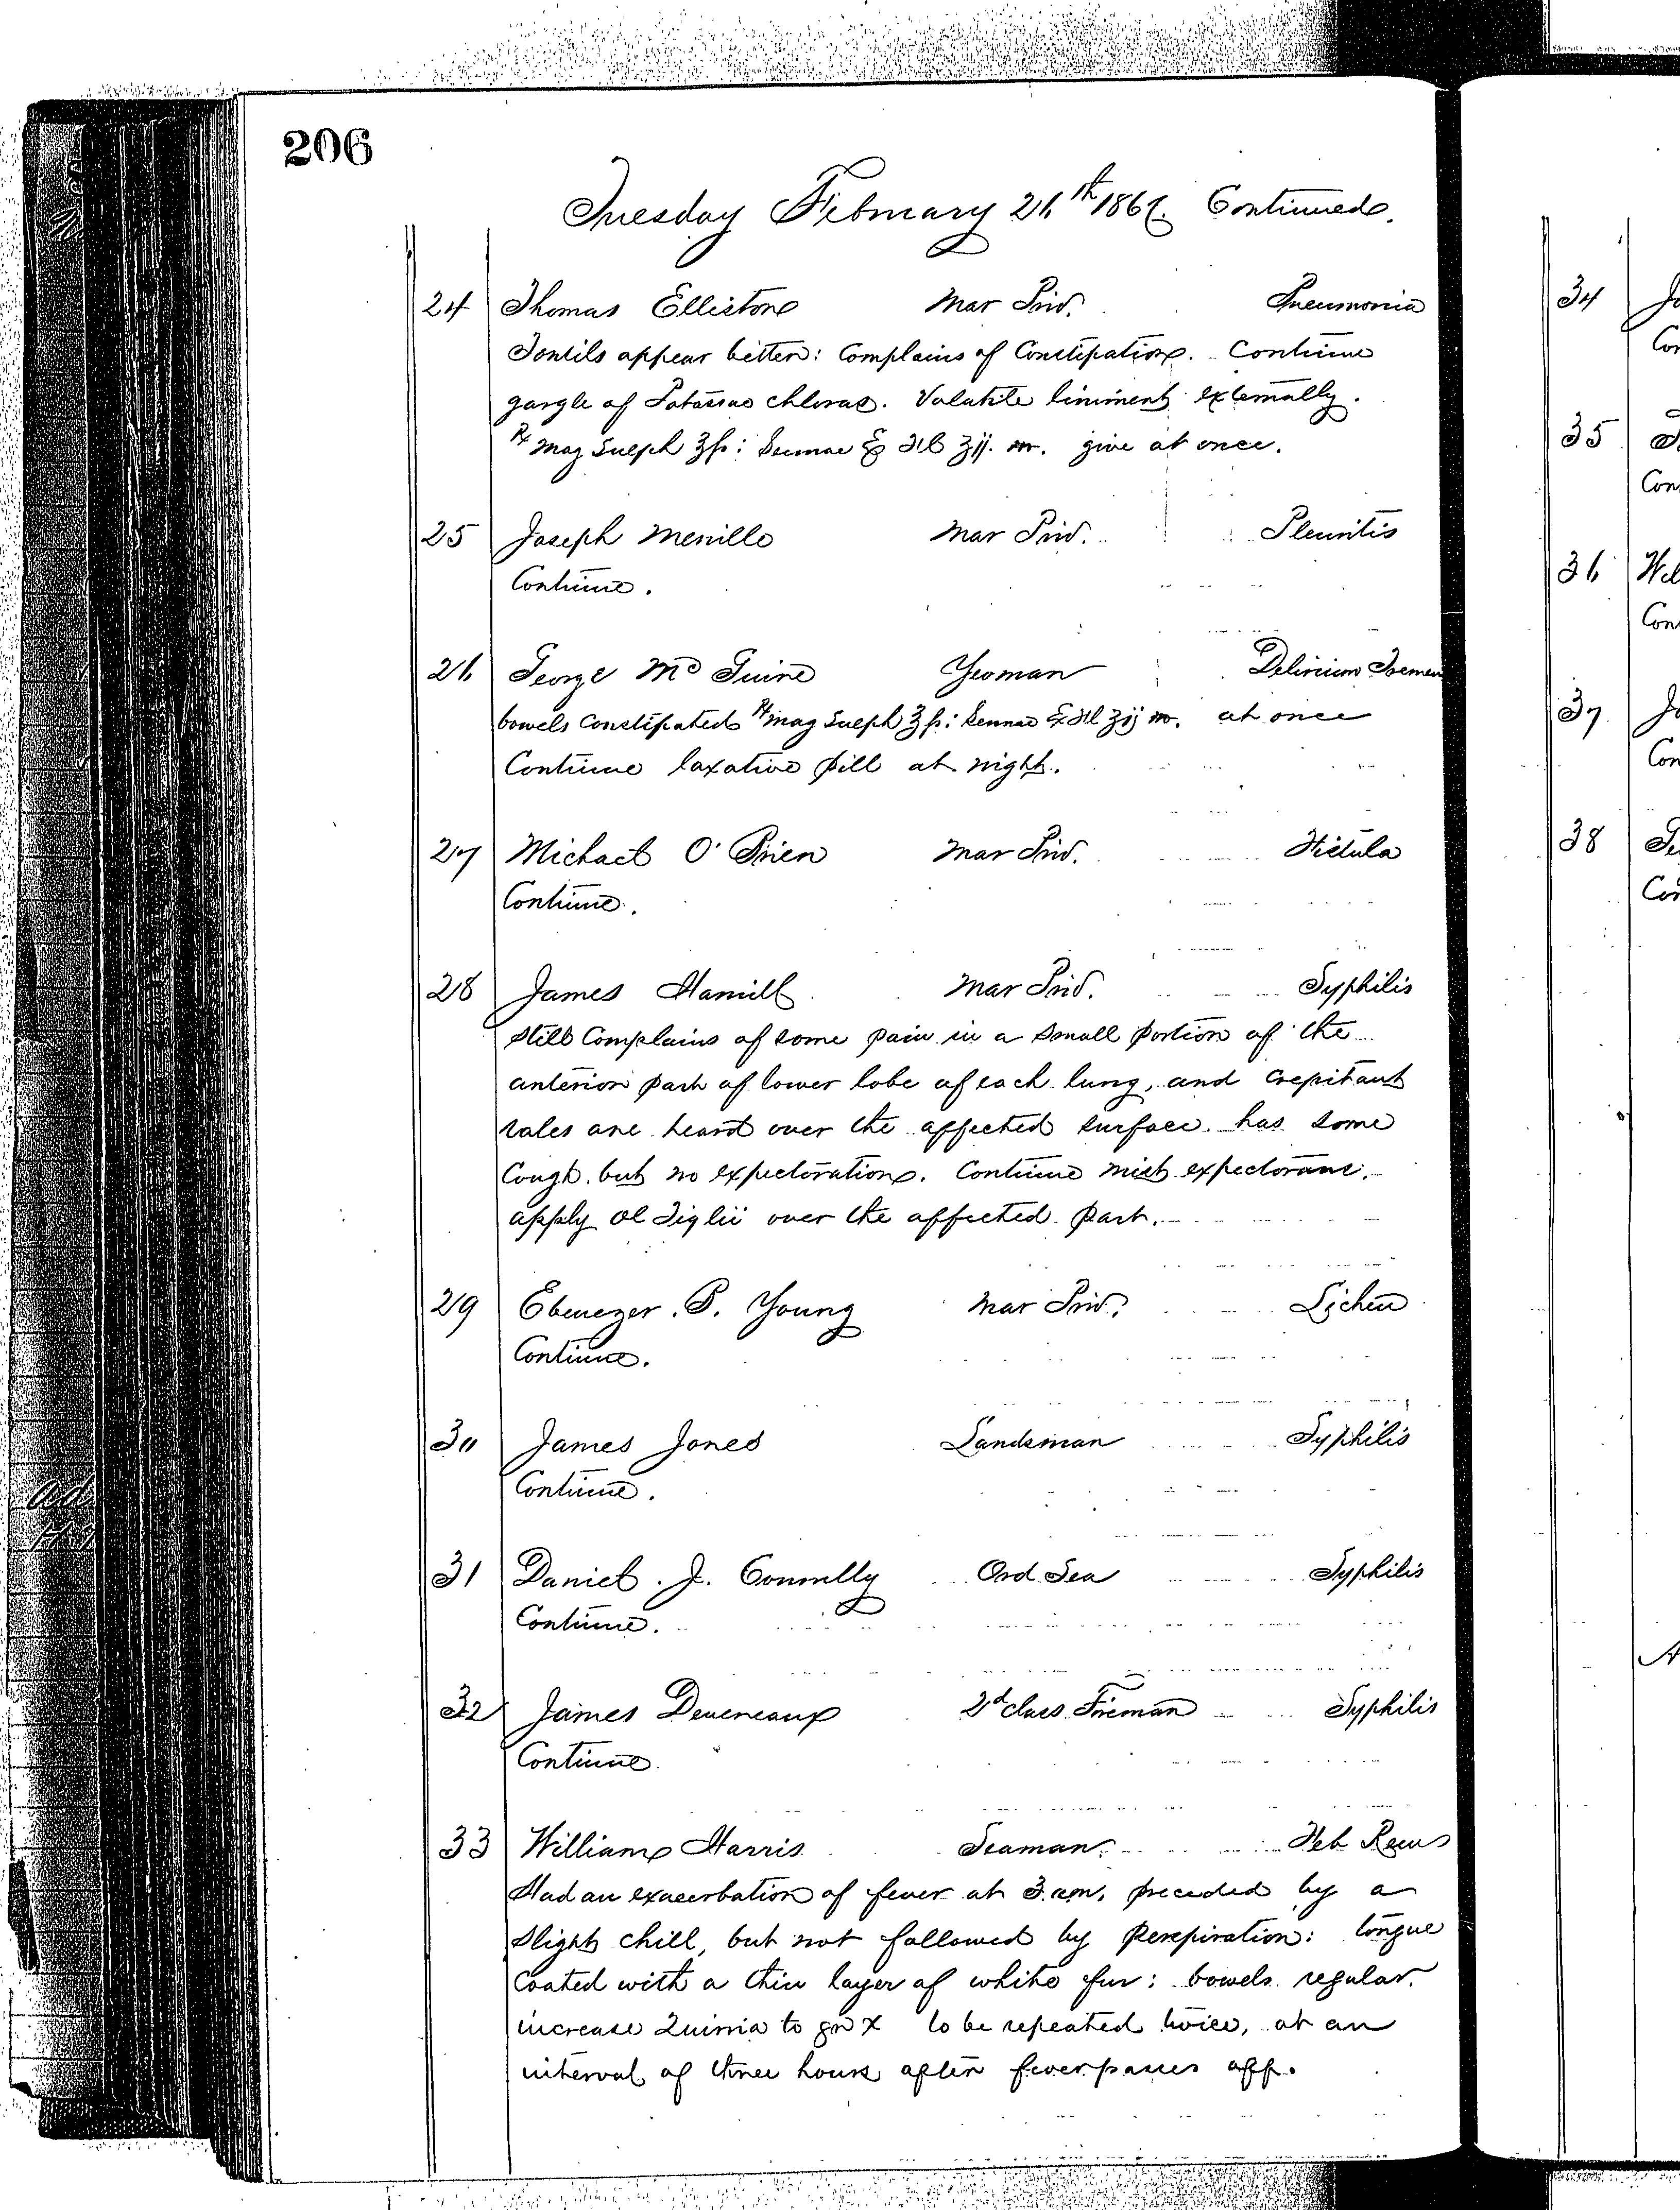 206
Tuesday February 26th 1867. Continued.
24 Thomas Elliston Mar Priv. Pneumonia
Tonsils appear better: Complains of Constipation. Continue
gargle of Potassae chloras. Volatile liniment externally.
℞ Mag Sulph ℥ſs: Sennae Ʒij. m. give at once.
25 Joseph Merrille Mar Priv. Pleuritis
Continue.
26 George Mc Guire Yeoman Delirium Tremen
bowels Constipated ℞ Mag Sulph ℥ſs: Sennae Ʒij m. at once
Continue laxative pill at night.
27 Michael O'Brien Mar Priv. Fistula
Continue.
28 James Hamill Mar Priv. Syphilis
Still Complains of some pain in a small portion of the
anterior part of lower lobe of each lung, and crepitant
rales are heard over the affected surface. has some
Cough. but no expectoration. Continue mist expectorant.
apply Ol Tiglii over the affected part.
29 Ebenezer. P. Young Mar Priv. Lichen
Continue.
30 James Jones Landsman Syphilis
Continue.
31 Daniel. J. Connelly Ord Sea Syphilis
Continue.
32 James Deveneaux 2d class Fireman Syphilis
Continue
33 William Harris Seaman. Feb Rems
Had an exacerbation of fever at 3. am. preceded by a
slight chill, but not followed by perspiration: tongue
Coated with a thin layer of white fur: bowels regular.
increase Quinia to grs x to be repeated twice, at an
interval of three hours after fever passes off.
34
Con
35
Con
36 Wil
Con
37 Ja
Con
38
Con